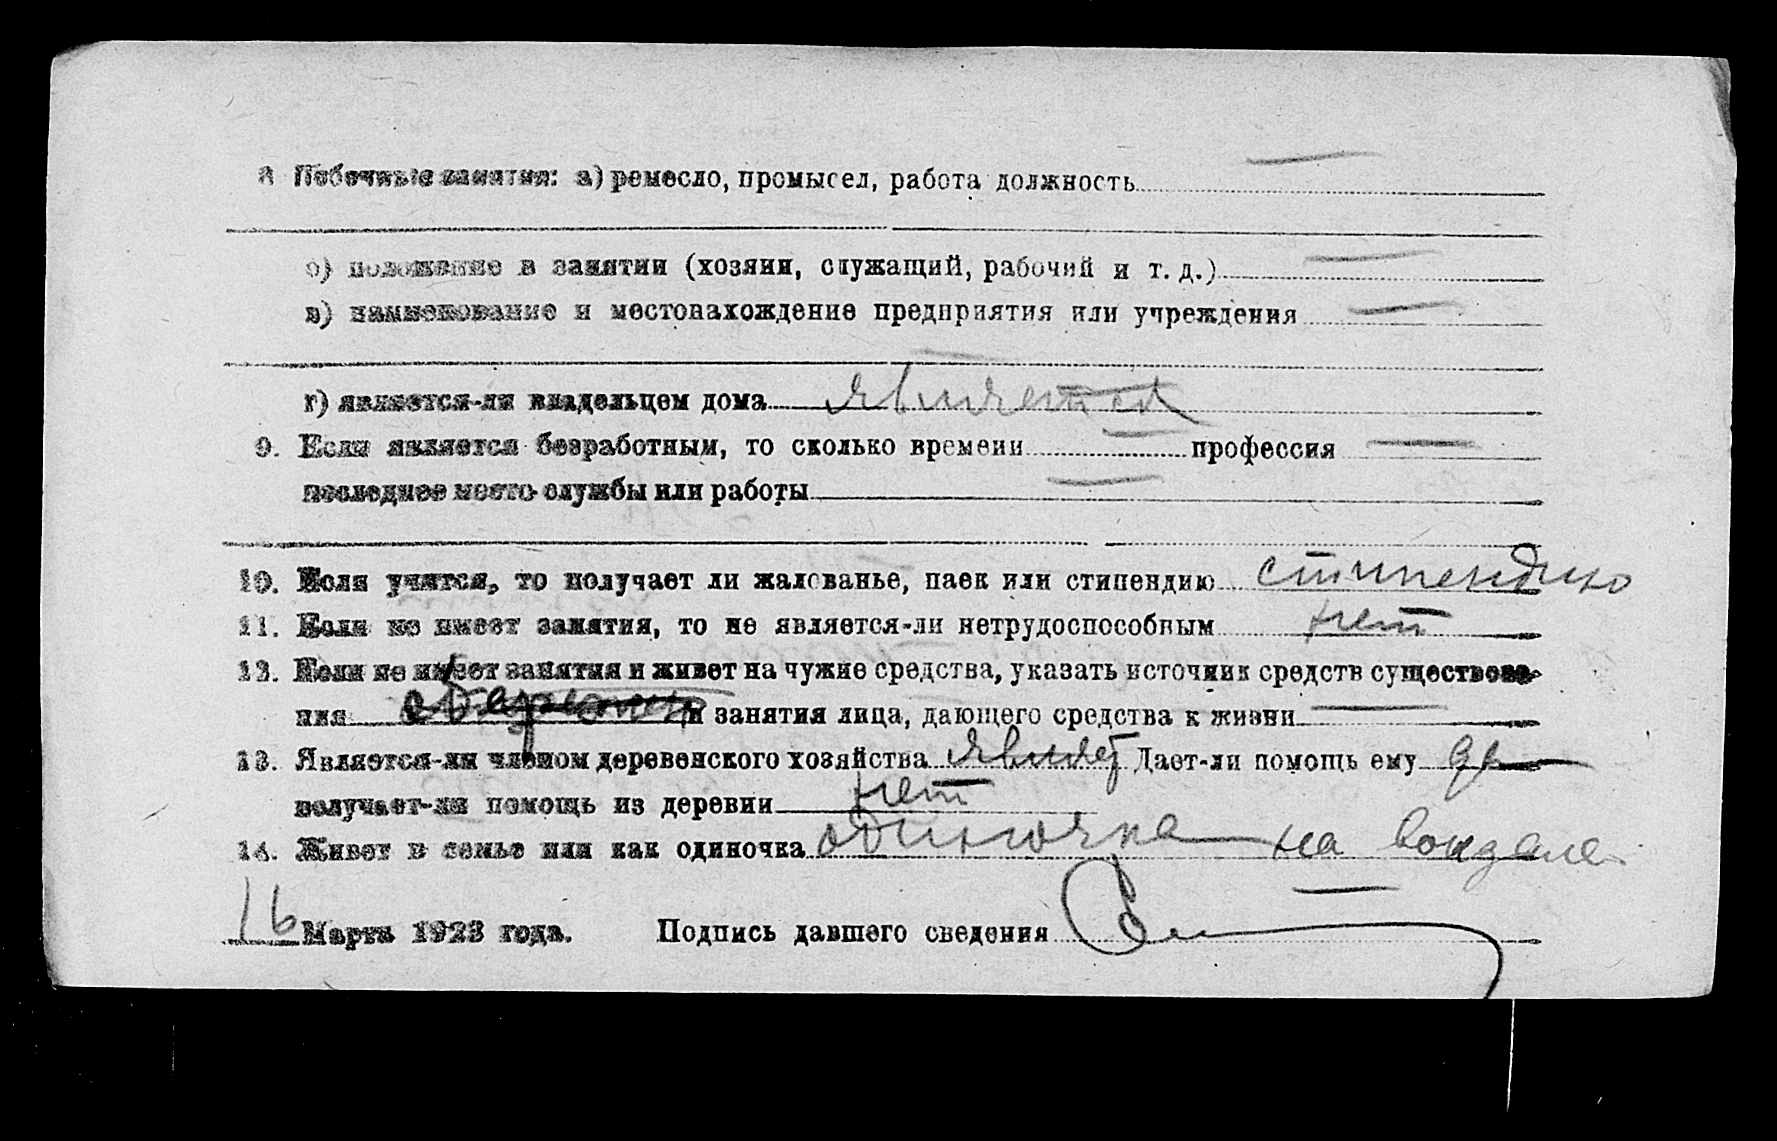 8 Побочные занятия: а) ремесло, промысел, работа должность —
б) положение в занятии (хозяин, служащий, рабочий и т. д.) —
в) наименование и местонахождение предприятия или учреждения —
г) является-ли владельцем дома является
9. Если является безработным, то сколько времени — профессия —
последнее место службы или работы —
10. Если учится, то получает ли жалованье, паек или стипендию стипендию
11. Если не имеет занятия, то не является-ли нетрудоспособным нет
12. Если не имеет занятия и живет на чужие средства, указать источник средств существова-
ния и занятия лица, дающего средства к жизни —
13. Является-ли членом деревенского хозяйства являет Дает-ли помощь ему
получает-ли помощь из деревни нет
14. Живет в семье или как одиночка одиночка на вокзале
16 Марта 1923 года. Подпись давшего сведения